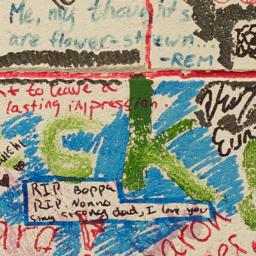 Me, my thoughts
are flower-strewn...
-REM
t to leave a
lasting impression...
CK
R.I.P. Boppa
R.I.P. Nonno
stay strong dad, I love you